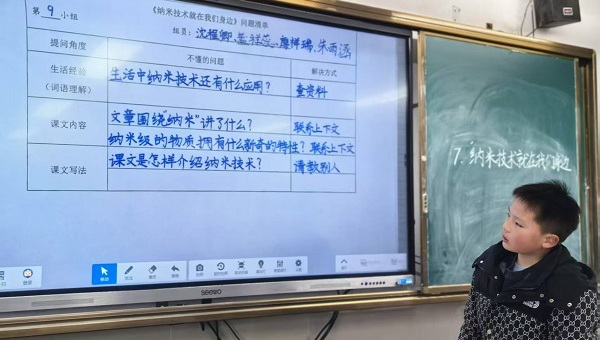 第 9 小组
《纳米技术就在我们身边》问题清单
组员：沈框卿、廖梓瑞、朱雨涵
提问角度
不懂的问题
解决方式
生活经验
（词语理解）
生活中纳米技术还有什么应用？
查资料
课文内容
文章围绕“纳米”讲了什么？
联系上下文
纳米级的物质拥有什么新奇的特性？
联系上下文
课文写法
课文是怎样介绍纳米技术？
请教别人
7. 纳米技术就在我们身边
移动
seewo